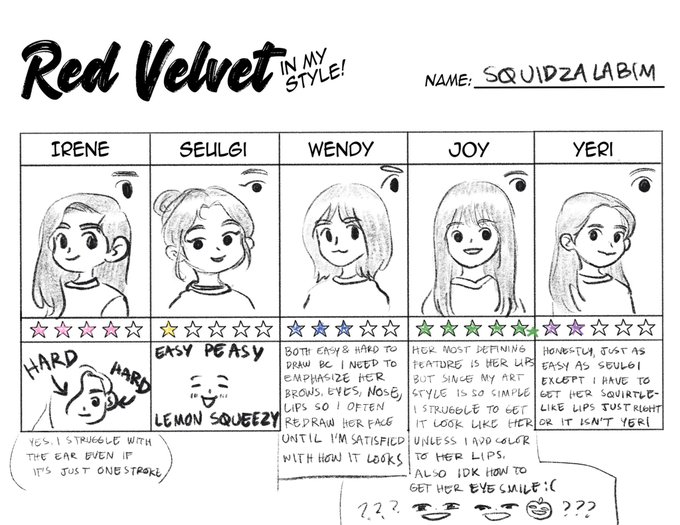 Red Velvet IN MY
STYLE!
NAME: SQUIDZALABIM
IRENE
SEULGI
WENDY
JOY
YERI
HARD
HARD
YES. I STRUGGLE WITH
THE EAR EVEN IF
IT'S JUST ONE STROKE
EASY PEASY
LEMON SQUEEZY
BOTH EASY & HARD TO
DRAW BC I NEED TO
EMPHASIZE HER
BROWS, EYES, NOSE,
LIPS SO I OFTEN
REDRAW HER FACE
UNTIL I'M SATISFIED
WITH HOW IT LOOKS
HER MOST DEFINING
FEATURE IS HER LIPS
BUT SINCE MY ART
STYLE IS SO SIMPLE
I STRUGGLE TO GET
IT LOOK LIKE HER
UNLESS I ADD COLOR
TO HER LIPS.
ALSO IDK HOW TO
GET HER EYE SMILE :(
? ? ? ? ? ?
HONESTLY, JUST AS
EASY AS SEULGI
EXCEPT I HAVE TO
GET HER SQUIRTLE-
LIKE LIPS JUST RIGHT
OR IT ISN'T YERI